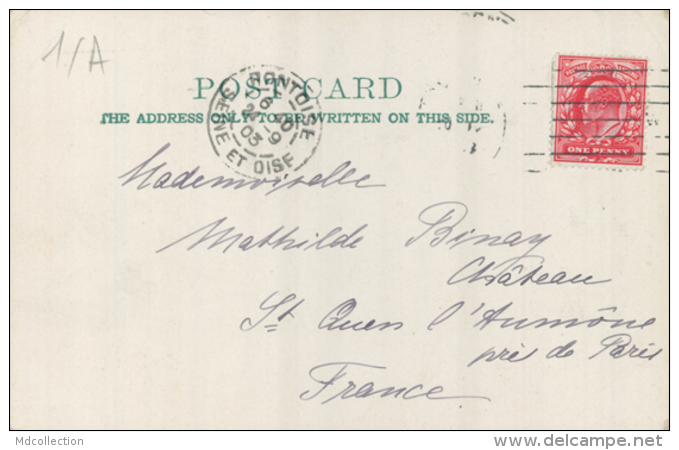 1/A
POST CARD
THE ADDRESS ONLY TO BE WRITTEN ON THIS SIDE.
PONTOISE
SEINE ET OISE
ONE PENNY
Mademoiselle
Mathilde Binay
Château
St Ouen l'Aumône
près de Paris
France
Mdcollection
www.delcampe.net